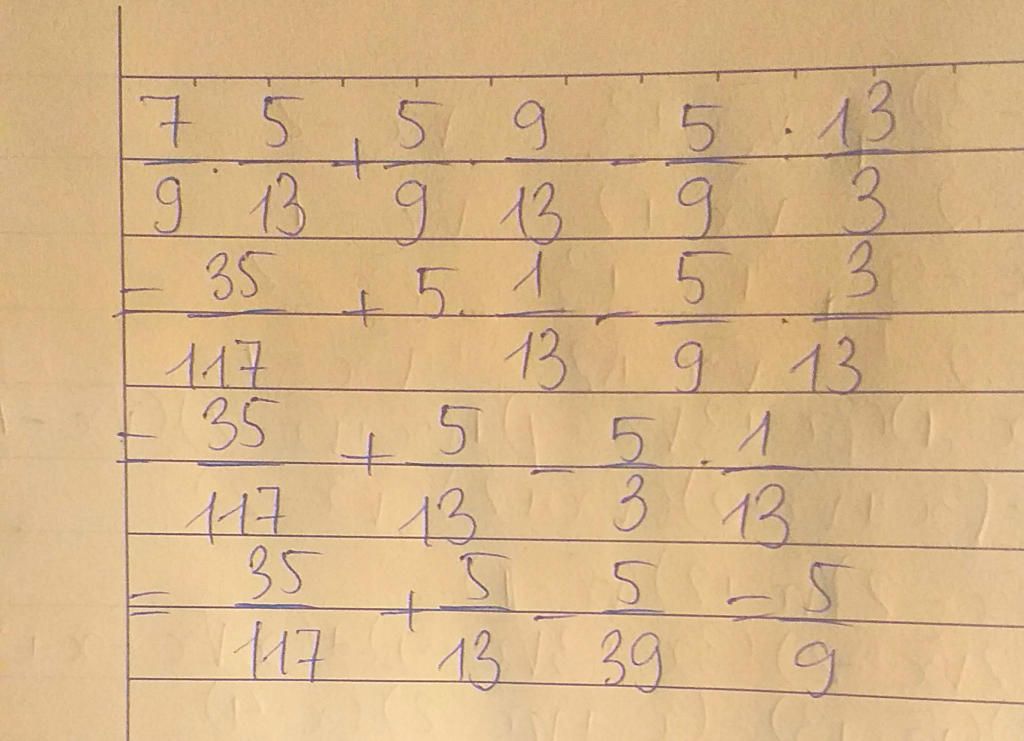 7/9 · 5/13 + 5/9 · 9/13 - 5/9 · 13/3
= 35/117 + 5 · 1/13 - 5/9 · 3/13
= 35/117 + 5/13 - 5/3 · 1/13
= 35/117 + 5/13 - 5/39 = 5/9